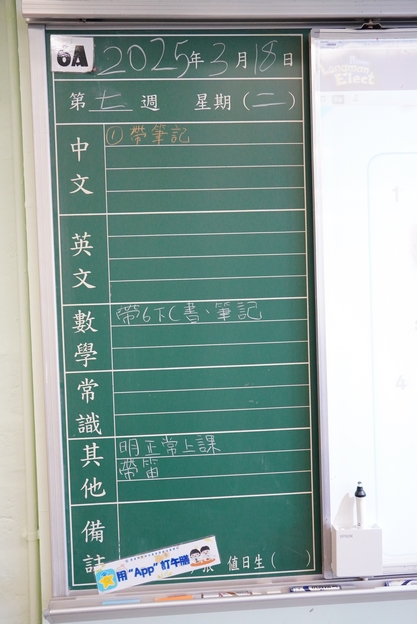 6A 2025年3月18日
第七週 星期(二)
中文
① 帶筆記
英文
數學
帶6下C書、筆記
常識
其他
明正常上課
帶雷
備
用"App"訂午膳
值日生( )
Longman
Elect
1
4
EPSON